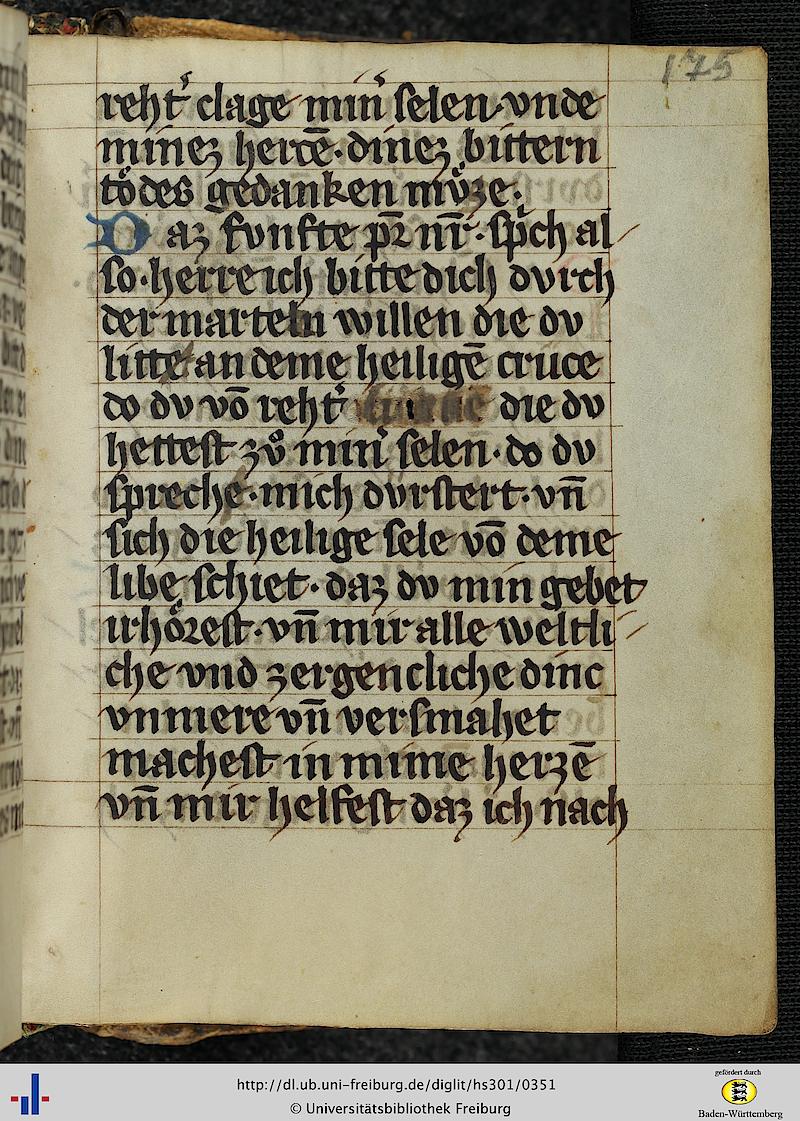 175
reht̄ clage min̄ selen·vnde
minez hercē·dinez bittern
tödes gedanken mvͦze·
Daz fvnfte pr̄ nr̄·sp̄ch al
so·herre ich bitte dich dvrch
der marteln willen die dv
litte an deme heiligē cruce
do dv vō reht̄ die dv
hettest zvͦ min̄ selen·do dv
spreche·mich dvrstert·vn̄
sich die heilige sele vō deme
libe schiet·daz dv min gebet
irhörest·vn̄ mir alle weltli
che vnd zergencliche dinc
vnmere vn̄ versmahet
machest in mime herzē
vn̄ mir helfest daz ich nach
http://dl.ub.uni-freiburg.de/diglit/hs301/0351
© Universitätsbibliothek Freiburg
gefördert durch
Baden-Württemberg